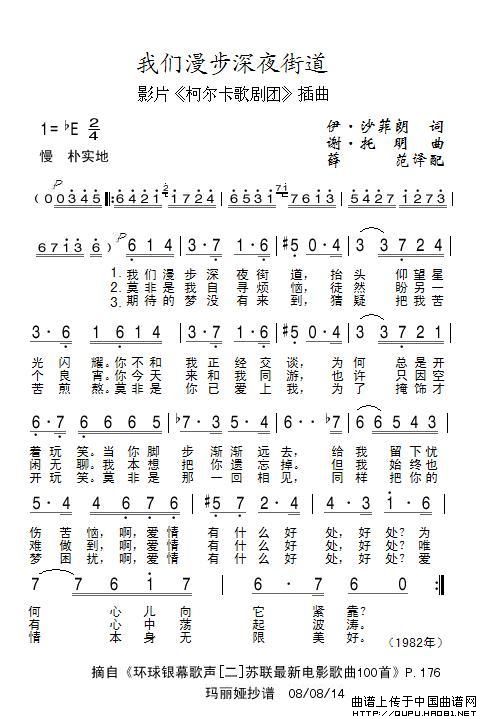 我们漫步深夜街道
影片《柯尔卡歌剧团》插曲
1=♭E 2/4
慢 朴实地
伊·沙菲朗 词
谢·托 明 曲
薛 范译配
(00345|:6421 1724|6531 7613|5427 1273|
6713 6) 614|3·7 1·6|#5 0·4|3 3724|
1.我们漫步深夜街道,抬头仰望星
2.莫非是我自寻烦恼,徒然盼另一
3.期待的梦没有来到,猜疑把我苦
3·6 1614|3·7 1·6|#5 0·4|3 3724|
光闪耀。你不和我正经交谈,为何总是开
个良宵。你今天来和我同游,也许只因空
苦煎熬。莫非是你已爱上我,为了掩饰才
6·7 6665|♭7·3 ♭7·5|6 0·7|6 6543|
着玩笑。当你脚步渐渐远去,给我留下忧
闲无聊。我本想把你遗忘掉。但我始终也
开玩笑。莫非是那一回相见,同样把你的
5·4 4667|#57 2·4|4 0·3|423 1·6|
伤苦恼,啊,爱情有什么好处,好处?为
难做到,啊,爱情有什么好处,好处?唯
梦困扰,啊,爱情有什么好处,好处?爱
7 7 6 1 7|3 7|6 6 0:‖
何心儿向它紧靠?
有心中荡起波涛。
情本身无限美好。
(1982年)
摘自《环球银幕歌声[二]苏联最新电影歌曲100首》P.176
玛丽娅抄谱 08/08/14
曲谱上传于中国曲谱网
http://QUPU.HAO81.NET